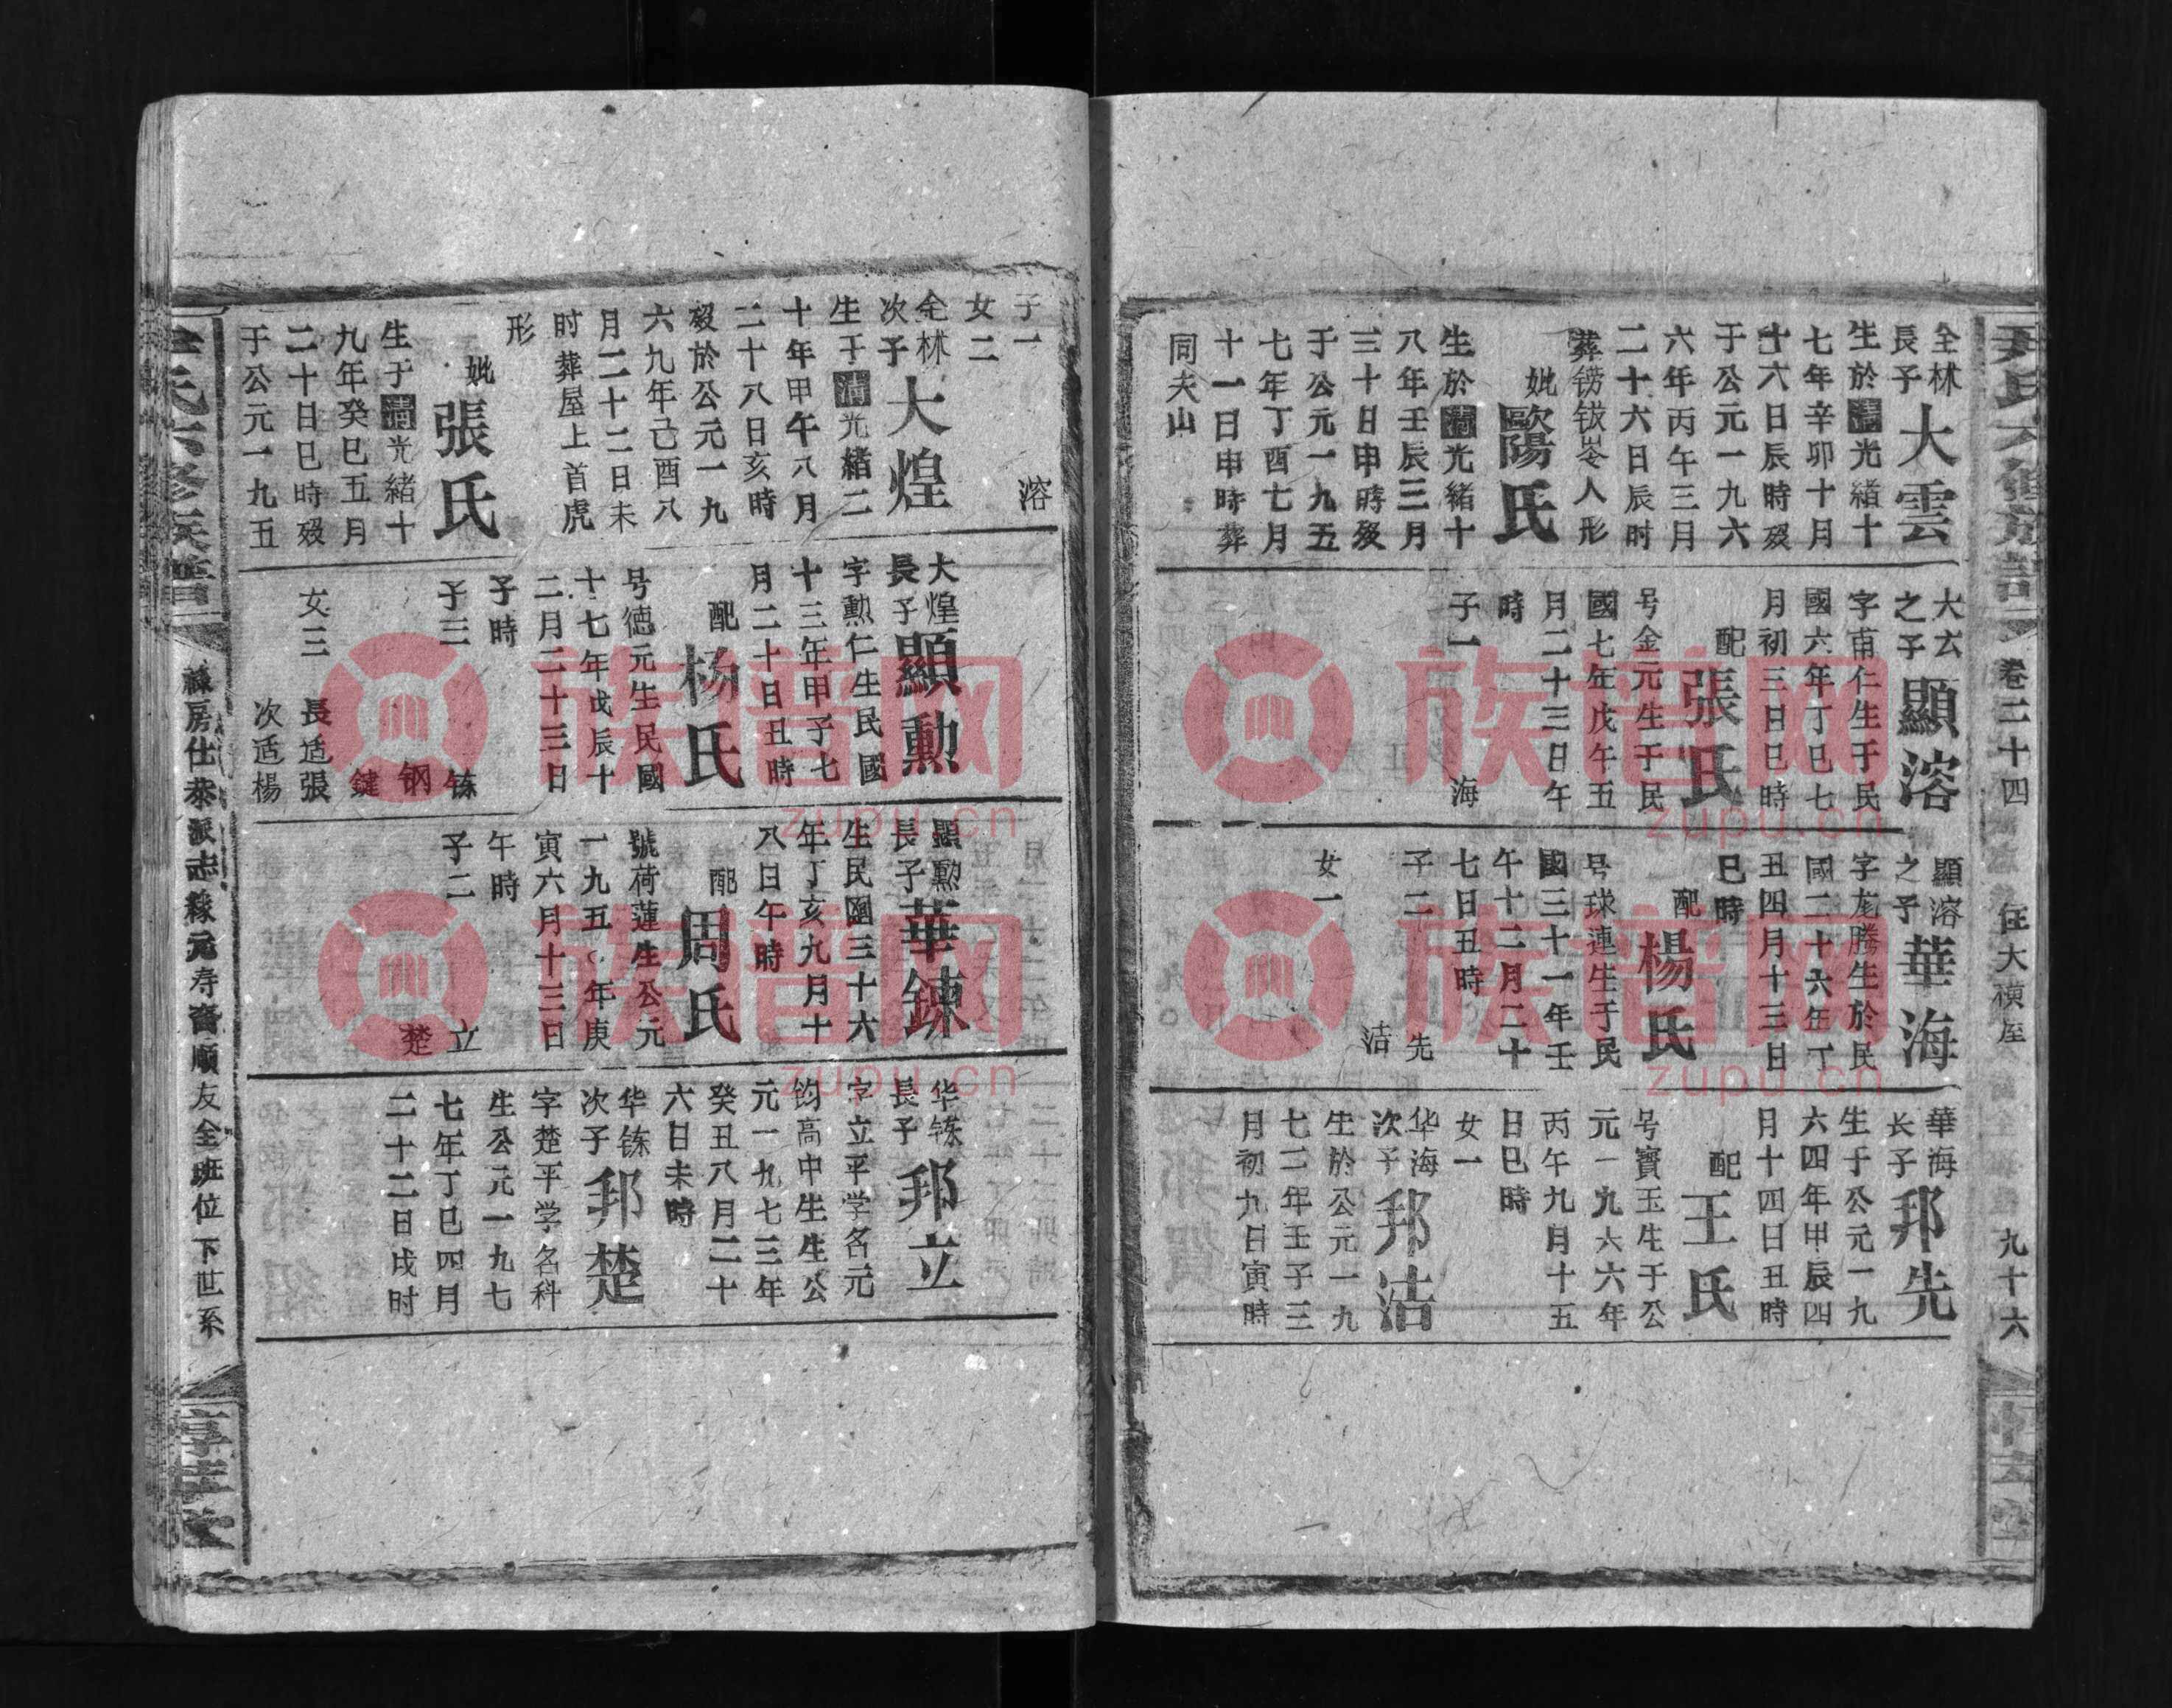 尹氏六修族譜
卷二十四
住大横座
九十六
全林
長子
大雲
生於清光緒十
七年辛卯十月
十六日辰時殁
于公元一九六
六年丙午三月
二十六日辰时
葬鎊钹岺人形
妣
歐陽氏
生於清光緒十
八年壬辰三月
三十日申時殁
于公元一九五
七年丁酉七月
十一日申時葬
同夫山
大玄
之子
顯溶
字甫仁生于民
國六年丁巳七
月初三日巳時
配
張氏
号金元生于民
國七年戊午五
月二十三日午
時
子一
海
顯溶
之子
華海
字尨勝生於民
國二十六年丁
丑四月十三日
巳時
配
楊氏
号球連生于民
國三十一年壬
午十二月二十
七日丑時
子二
先
洁
女一
華海
长子
邦先
生于公元一九
六四年甲辰四
月十四日丑時
配
王氏
号寳玉生于公
元一九六六年
丙午九月十五
日巳時
女一
华海
次子
邦洁
生於公元一九
七二年壬子三
月初九日寅時
子一
溶
女二
全林
次子
大煌
生于清光緒二
十年甲午八月
二十八日亥時
殁於公元一九
六九年己酉八
月二十二日未
时葬屋上首虎
形
妣
張氏
生于清光緒十
九年癸巳五月
二十日巳時殁
于公元一九五
大煌
長子
顯勳
字勳仁生民國
十三年甲子七
月二十日丑時
配
杨氏
号德元生民國
十七年戊辰十
二月二十三日
子時
子三
铼
钢
鍵
女三
長适張
次适楊
顯勳
長子
華鍊
生民國三十六
年丁亥九月十
八日午時
配
周氏
號荷蓮生公元
一九五〇年庚
寅六月十三日
午時
子二
立
楚
华铼
長子
邦立
字立平学名元
钧高中生生公
元一九七三年
癸丑八月二十
六日未時
华铼
次子
邦楚
字楚平学名科
生公元一九七
七年丁巳四月
二十二日戌时
尹氏六修族譜
祿房仕泰派志緣元寿裔順友全班位下世系
惇莘堂
族谱网
zupu.cn
族谱网
zupu.cn
族谱网
zupu.cn
族谱网
zupu.cn